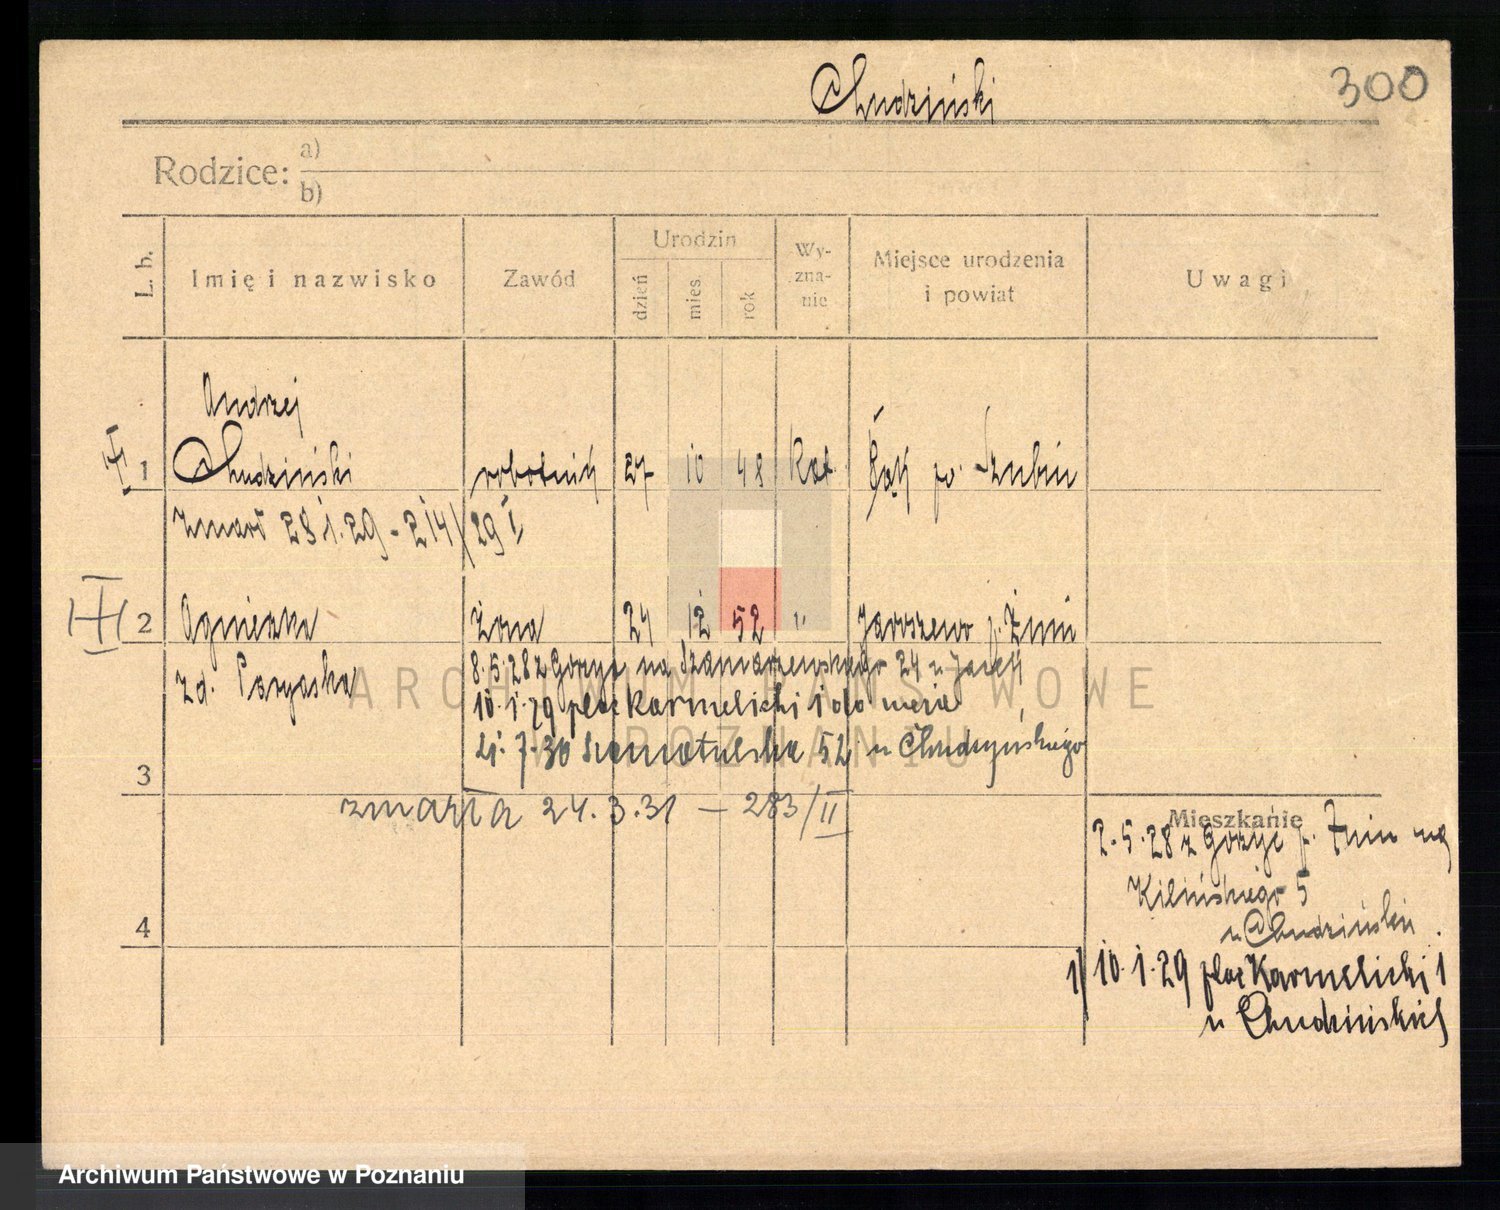 Chudziński
300
Rodzice: a)
b)
L. b.
Imię i nazwisko
Zawód
Urodzin
dzień
mies.
rok
Wy-
zna-
nie
Miejsce urodzenia
i powiat
Uwagi
Andrzej
1 Chudziński robotnik 27 10 48 Kat. Łąki po. Szubin
zmarł 28 1. 29 - 214/29 I
2 Agnieszka żona 24 12 52 " Jaroszewo p. Żnin
zd.
8.5.28 z Gorzyc na Szamarzewskiego 24 u
10.1.29 plac Karmelicki 1 do
21.7.30 Szamotulska 52 u Chudzyńskiego
3
zmarła 24.3.31 — 283/II
Mieszkanie
2.5.28 z Gorzyc p. Żnin na
Kilińskiego 5
u Chudziński
4
1) 10.1.29 plac Karmelicki 1
u Chudzińskich
ARCHIWUM PAŃSTWOWE
W POZNANIU
Archiwum Państwowe w Poznaniu